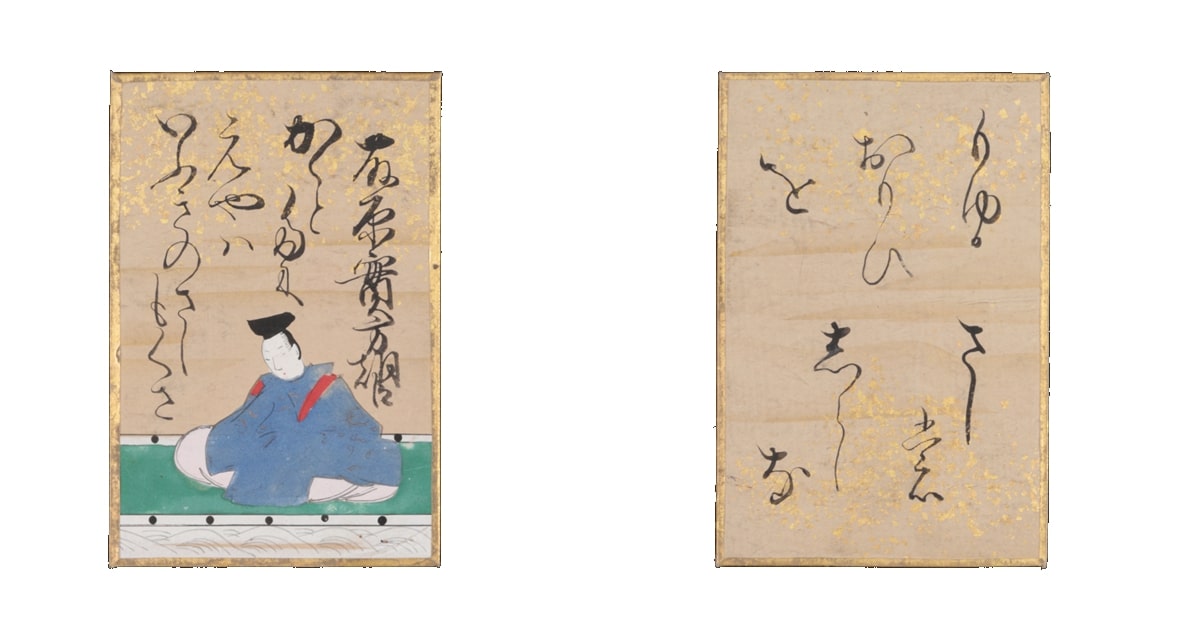 藤原實方朝臣
かくとたに
えやハ
いふきのさしもくさ
さし
裳
しらし
な
もゆる
おもひ
を